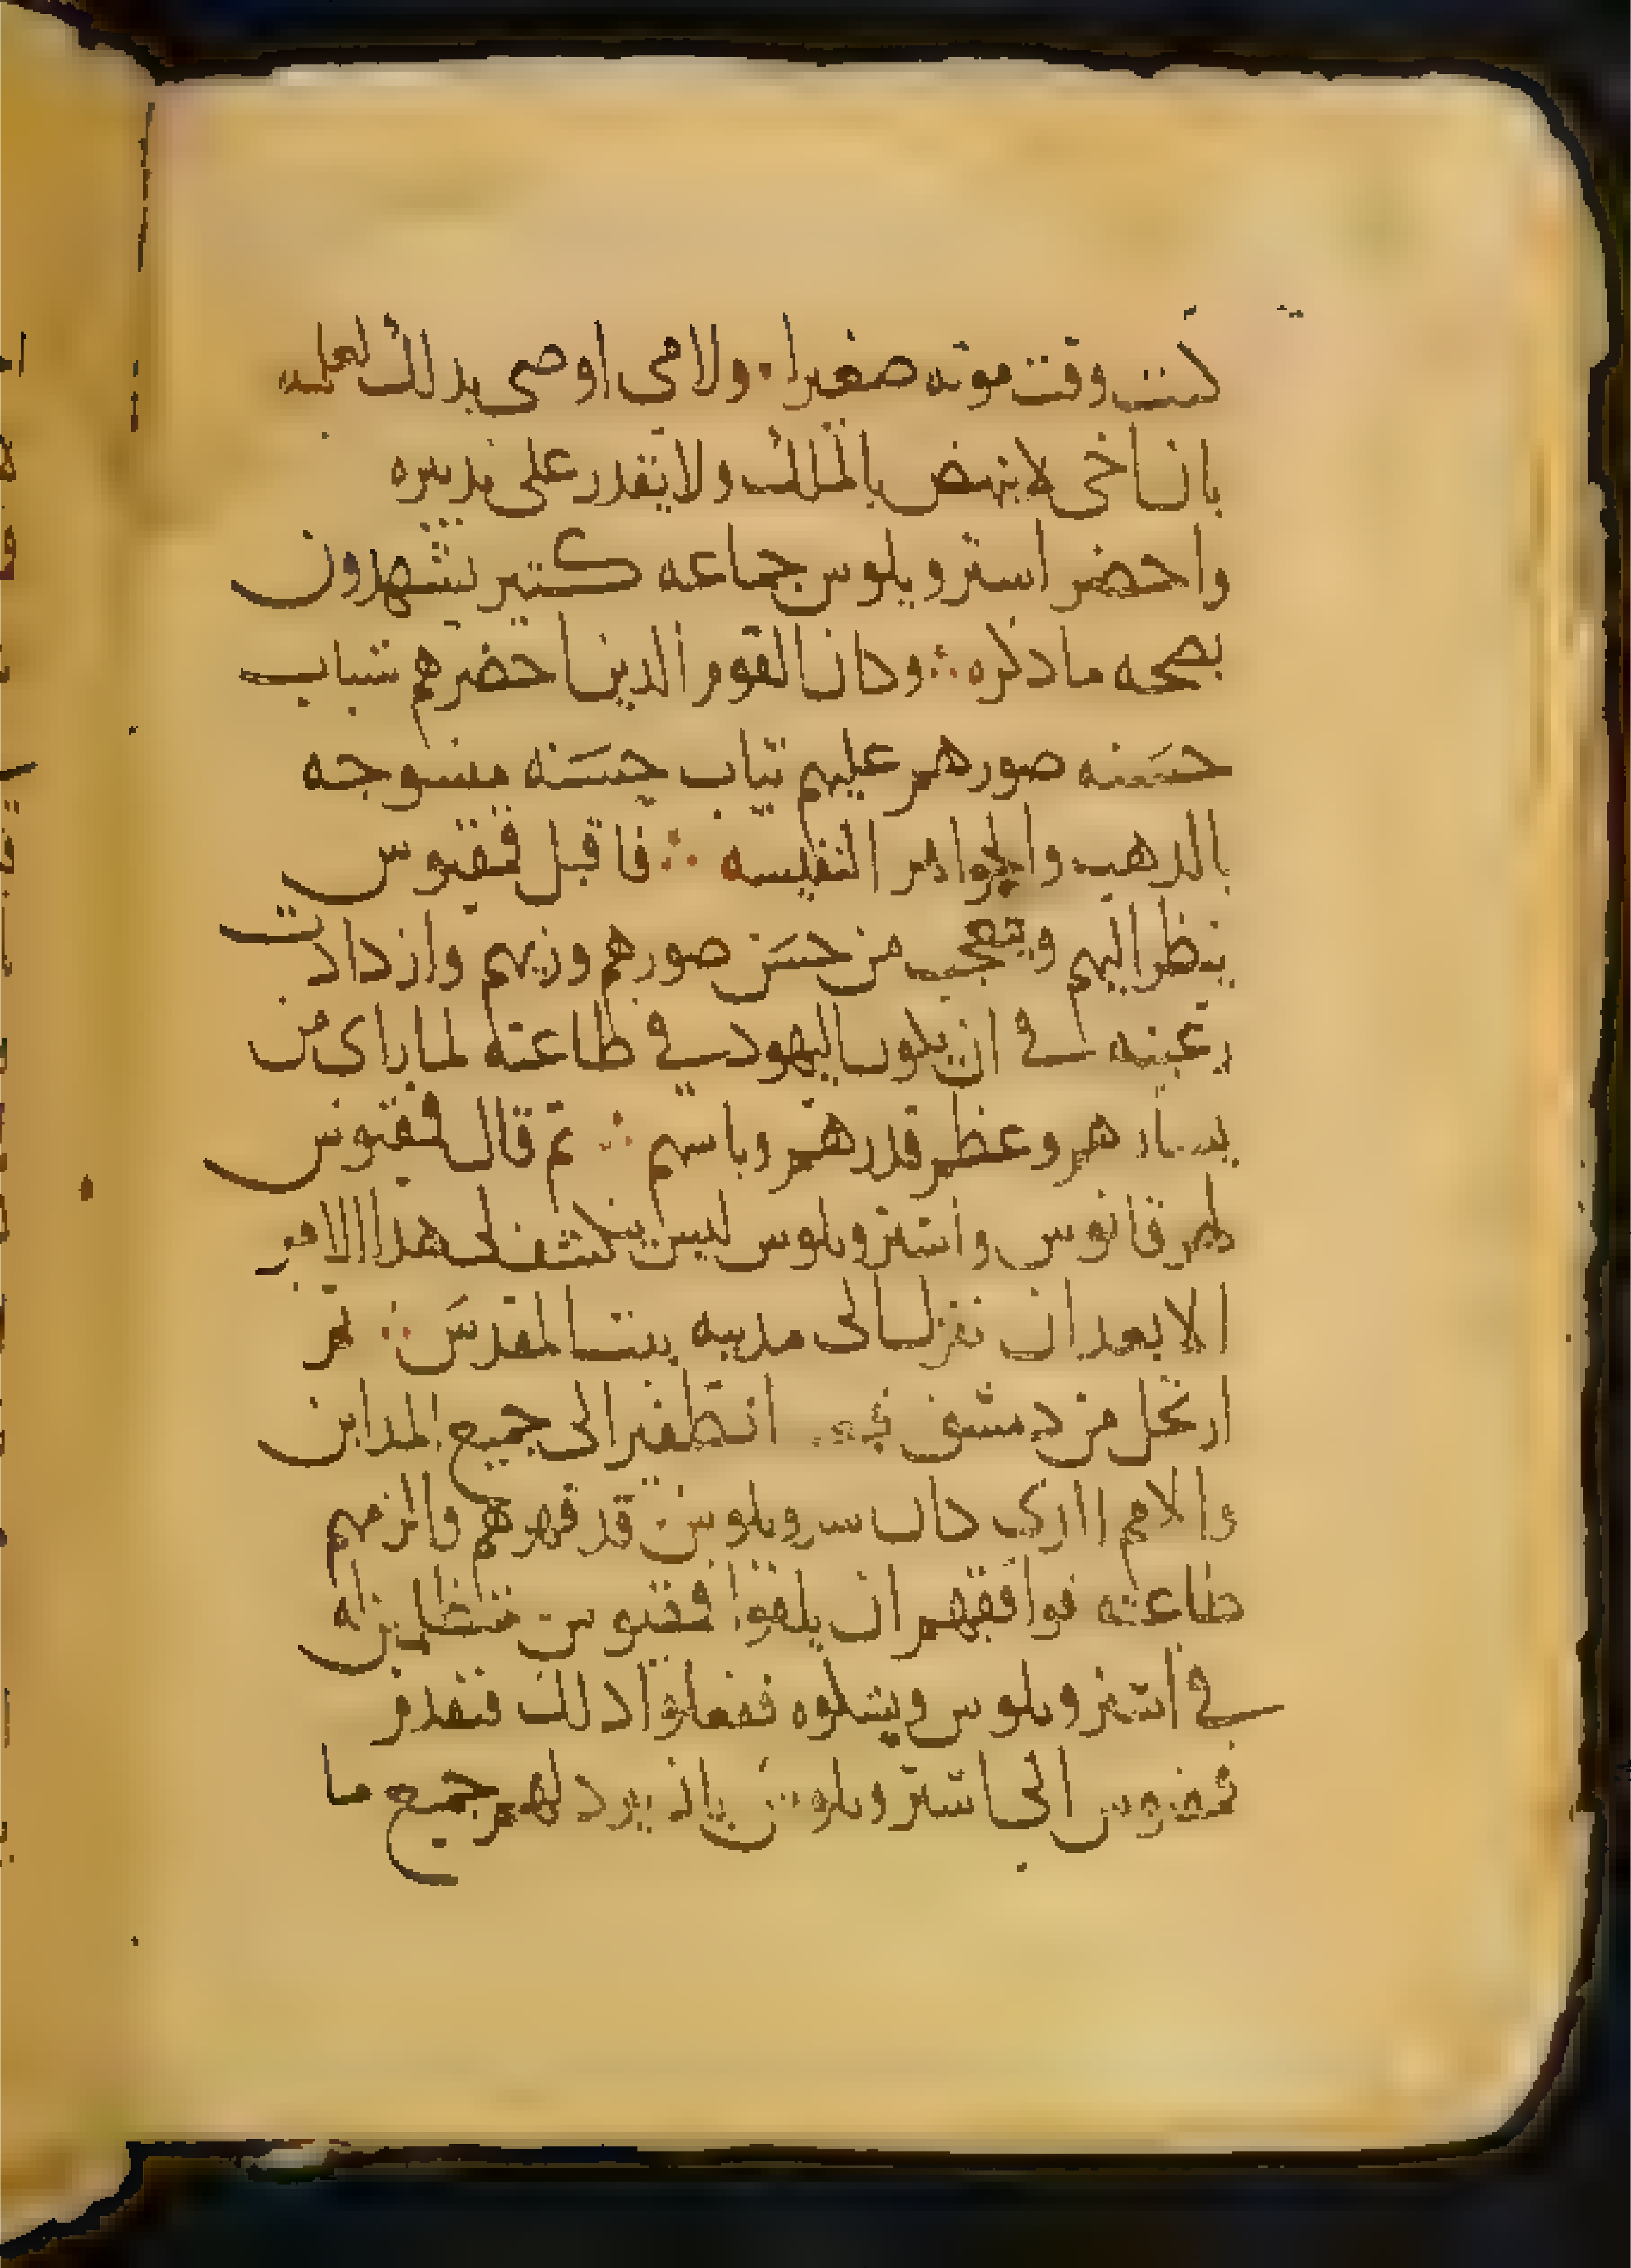 كنت وقت موته صغيرا. ولامى اوصى بدلك لعلمه
بان اخى لا ينهض بالملك ولا يقدر على تدبيره
واحضر استروبلوس جماعه كتير يشهدون
بصحه ما دكره ∴ وكان القوم الدين احضرهم شباب
حسنه صورهم عليهم تياب حسنه منسوجه
بالدهب والجواهر النفيسه ∴ فاقبل فمقيوس
ينظر اليهم ويتعجب من حسن صورهم وزيهم وازدادت
رغبته في ان يكون اليهود في طاعته لما راى من
يسارهم وعظم قدرهم وباسهم ∴ تم قال فمقيوس
لهرقانوس واسترو بلوس ليس ينكشف لى هدا الامر
الا بعد ان ننزل الى مدينه بيت المقدس ∴ تم
ارتحل من دمشق انطفير الى جميع المداين
والامم كان استروبلوس قد قهرهم والزمهم
طاعته فوافقهم ان يلقوا فمقيوس متظلمين
في استروبلوس ويشكوه ففعلوا دلك فتقدم
فمقيوس الى استروبلوس بان يرد لهم جميع ما